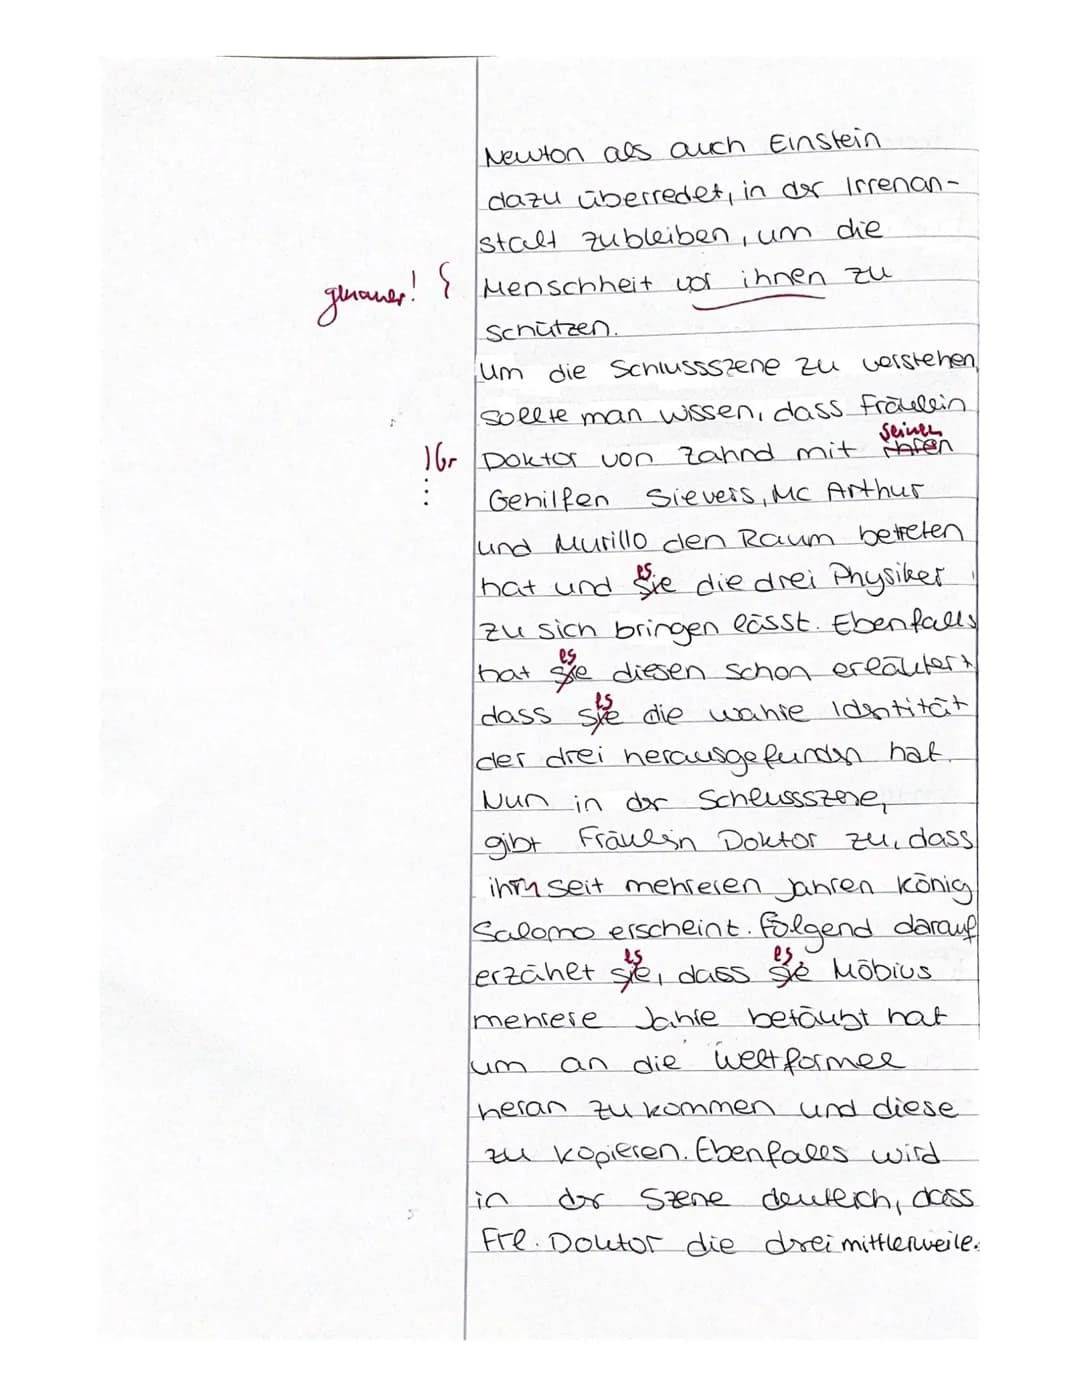 Newton als auch Einstein
dazu überredet, in der Irrenan-
stalt zubleiben, um die
genauer! { Menschheit vor ihnen zu
schützen.
Um die Schlussszene zu verstehen,
sollte man wissen, dass Fräulein
seinen
Doktor von Zahnd mit ihren
Gehilfen Sievers, Mc Arthur
und Murillo den Raum betreten
es
hat und sie die drei Physiker
zu sich bringen lässt. Ebenfalls
es
hat sie diesen schon erläutert
es
dass sie die wahre Identität
der drei herausgefunden hat.
Nun in der Schlussszene,
gibt Fräulein Doktor zu, dass
ihm seit mehreren Jahren König
Salomo erscheint. Folgend darauf
es es
erzählt sie, dass sie Möbius
mehrere Jahre betäubt hat
um an die Weltformel
heran zu kommen und diese
zu kopieren. Ebenfalls wird
in der Szene deutlich, dass
Frl. Doktor die drei mittlerweile